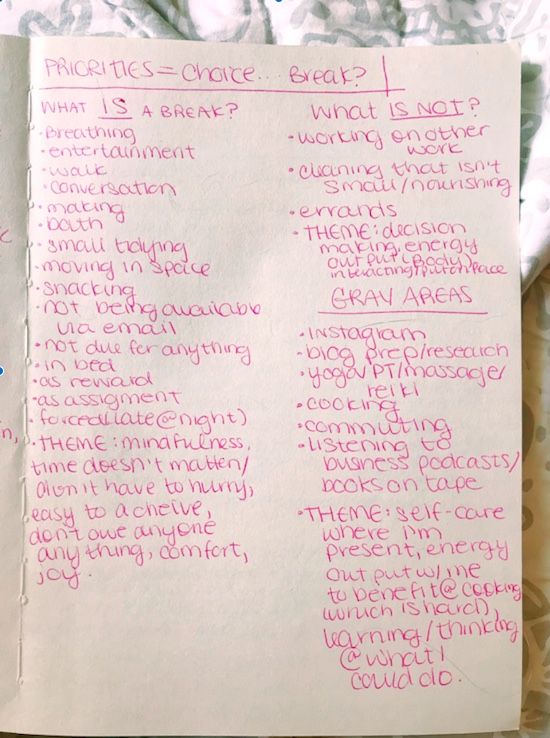 PRIORITIES = Choice... Break?
WHAT IS A BREAK?
• Breathing
• entertainment
• walk
• conversation
• making
• bath
• small tidying
• moving in space
• snacking
• not being available
via email
• not due for anything
• in bed
• as reward
• as assigment
• forced (late @ night)
• THEME: mindfulness,
time doesn't matter/
don't have to hurry,
easy to acheive,
don't owe anyone
anything, comfort,
joy.
What IS NOT?
• working on other
work
• cleaning that isn't
small/nourishing
• errands
• THEME: decision
making, energy
output (Body)
interacting/put on face
GRAY AREAS
• INSTAGRAM
• blog prep/research
• yoga/PT/massage/
reiki
• cooking
• commuting
• listening to
business podcasts/
books on tape
• THEME: self-care
where I'm
present, energy
output w/me
to benefit @ cooking
which is hard,
learning/thinking
@ what I
could do.